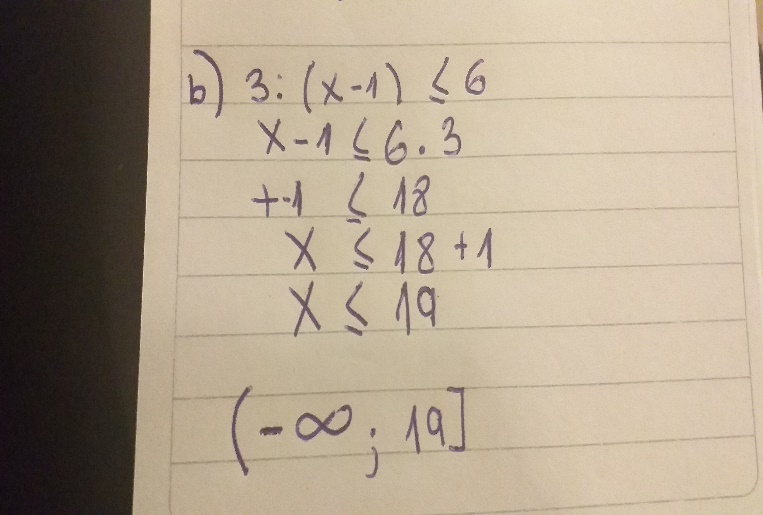 b) 3:(x-1) ≤ 6
x-1 ≤ 6.3
+-1 ≤ 18
x ≤ 18+1
x ≤ 19
(-∞; 19]